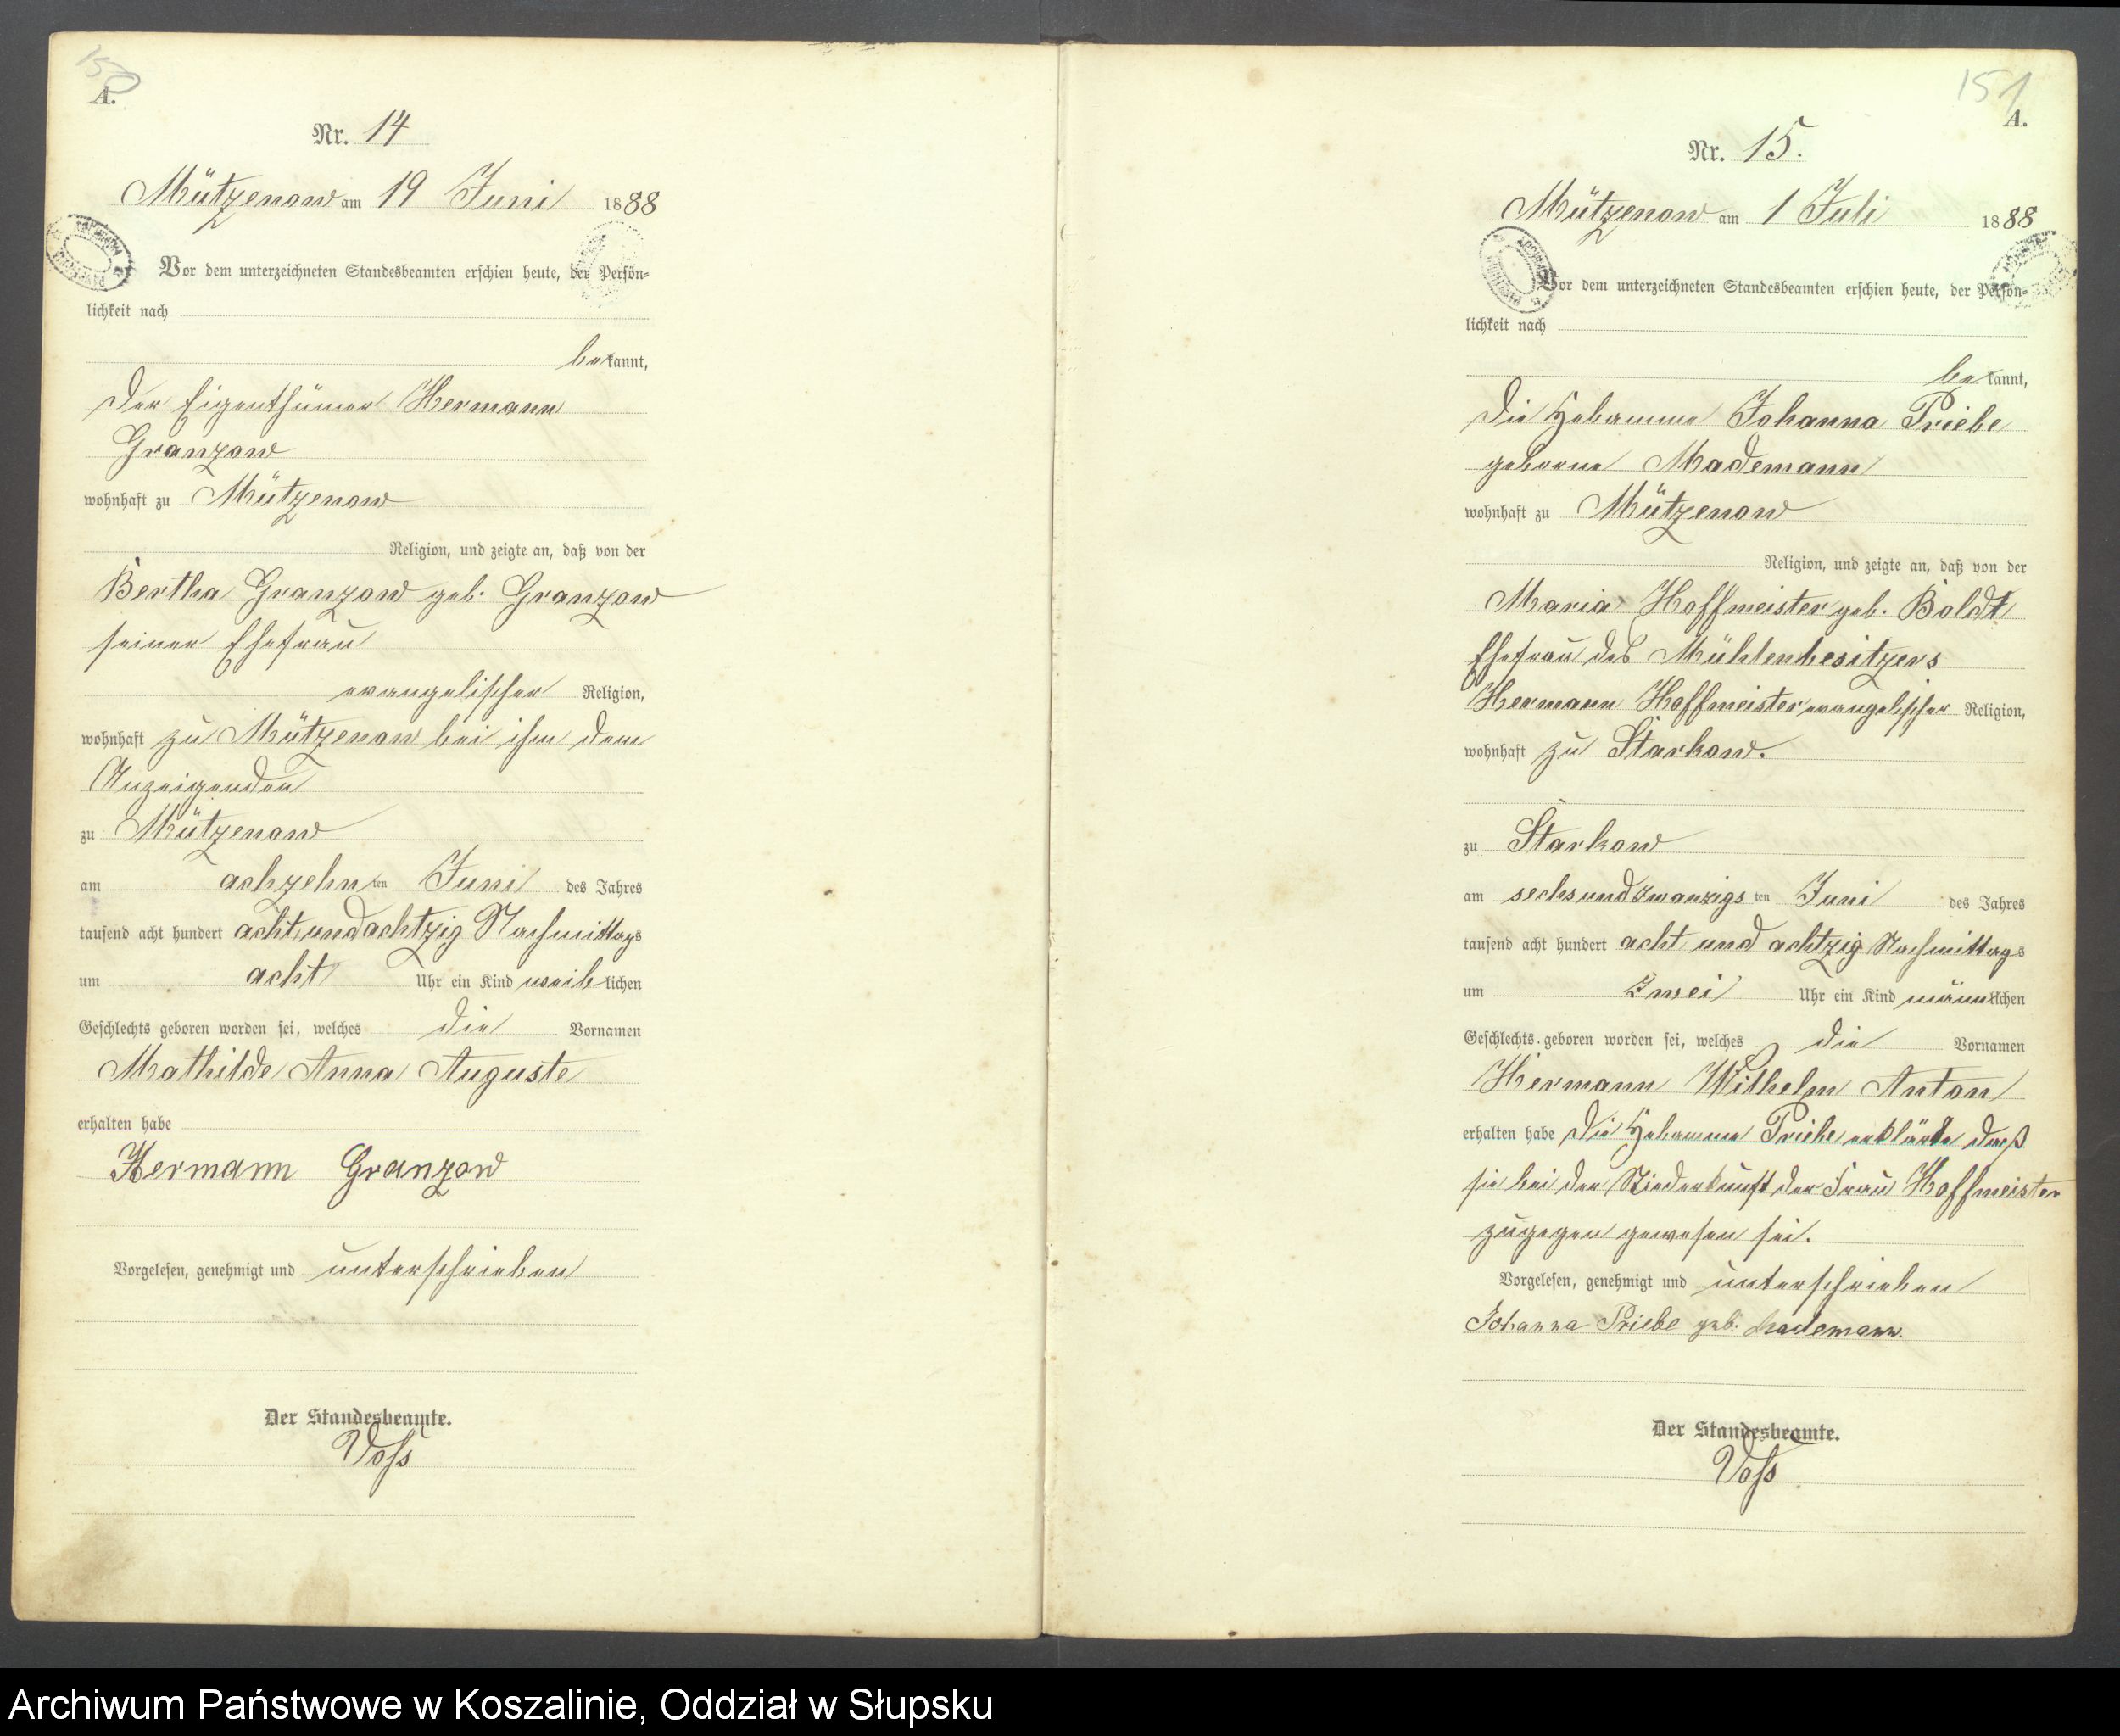 150
A.
Nr. 14
Mützenow am 19 Juni 1888
Vor dem unterzeichneten Standesbeamten erschien heute, der Persön-
lichkeit nach
bekannt,
der Eigenthümer Hermann
Granzow
wohnhaft zu Mützenow
Religion, und zeigte an, daß von der
Bertha Granzow geb. Granzow
seiner Ehefrau
evangelischer Religion,
wohnhaft zu Mützenow bei ihm dem
Anzeigenden
zu Mützenow
am achzehnten Juni des Jahres
tausend acht hundert acht und achtzig Nachmittags
um acht Uhr ein Kind weiblichen
Geschlechts geboren worden sei, welches die Vornamen
Mathilde Anna Auguste
erhalten habe
Hermann Granzow
Vorgelesen, genehmigt und unterschrieben
Der Standesbeamte.
Voß
151
A.
Nr. 15.
Mützenow am 1 Juli 1888
Vor dem unterzeichneten Standesbeamten erschien heute, der Persön-
lichkeit nach
bekannt,
die Hebamme Johanna Priebe
geborne Mademann
wohnhaft zu Mützenow
Religion, und zeigte an, daß von der
Maria Hoffmeister geb. Boldt
Ehefrau des Mühlenbesitzers
Hermann Hoffmeister evangelischer Religion,
wohnhaft zu Starkow.
zu Starkow
am sechsundzwanzigsten Juni des Jahres
tausend acht hundert acht und achtzig Nachmittags
um Zwei Uhr ein Kind männlichen
Geschlechts geboren worden sei, welches die Vornamen
Hermann Wilhelm Anton
erhalten habe Die Hebamme Priebe erklärte daß
sie bei der Niederkunft der Frau Hoffmeister
zugegen gewesen sei.
Vorgelesen, genehmigt und unterschrieben
Johanna Priebe geb. Mademann.
Der Standesbeamte.
Voß
Archiwum Państwowe w Koszalinie, Oddział w Słupsku